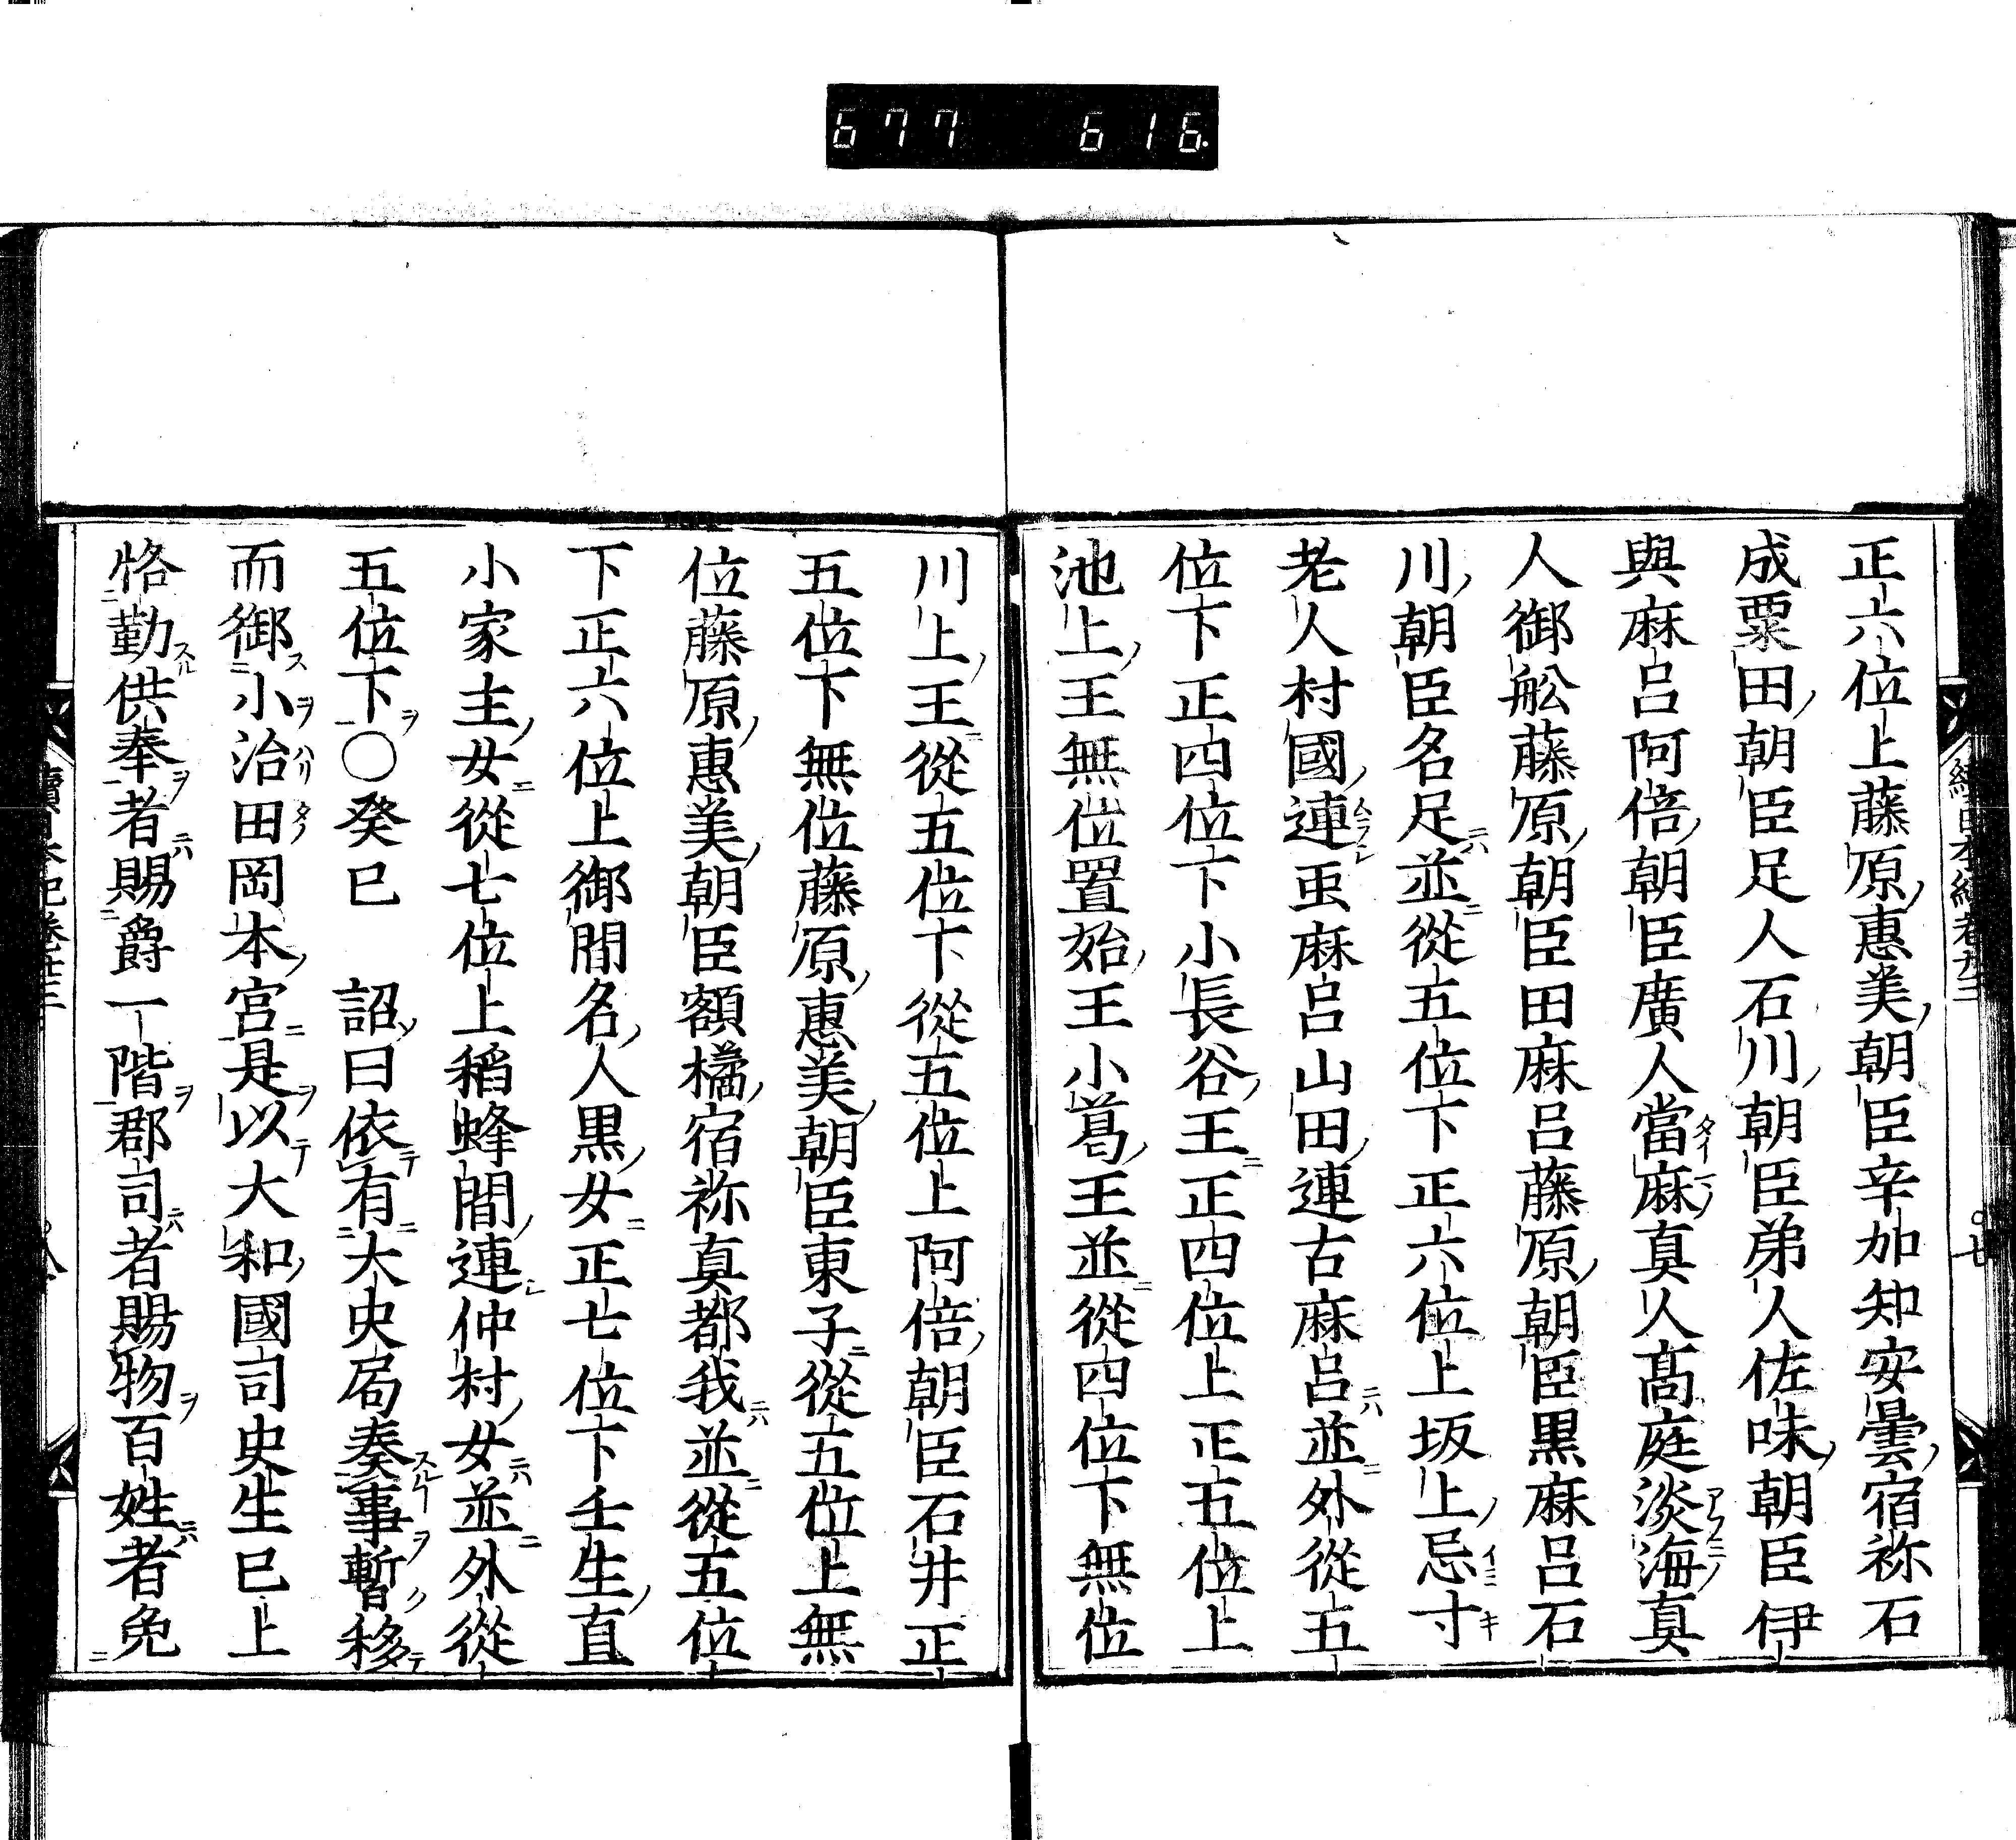 677 616.
正六位上藤原惠美朝臣辛加知安曇宿祢石
成粟田朝臣足人石川朝臣弟人佐味朝臣伊
與麻呂阿倍朝臣廣人當麻真人髙庭淡海真
人御舩藤原朝臣田麻呂藤原朝臣黒麻呂石
川朝臣名足並從五位下正六位上坂上忌寸
老人村國連虫麻呂山田連古麻呂並外從五
位下正四位下小長谷王正四位上正五位上
池上王無位置始王小葛王並從四位下無位
川上王從五位下從五位上阿倍朝臣石井正
五位下無位藤原惠美朝臣東子從五位上無
位藤原惠美朝臣額橘宿祢真都我並從五位
下正六位上御間名人黒女正七位下壬生直
小家主女從七位上稻蜂間連仲村女並外從
五位下○癸巳　詔曰依有大史局奏事暫移
而御小治田岡本宮是以大和國司史生已上
恪勤供奉者賜爵一階郡司者賜物百姓者免